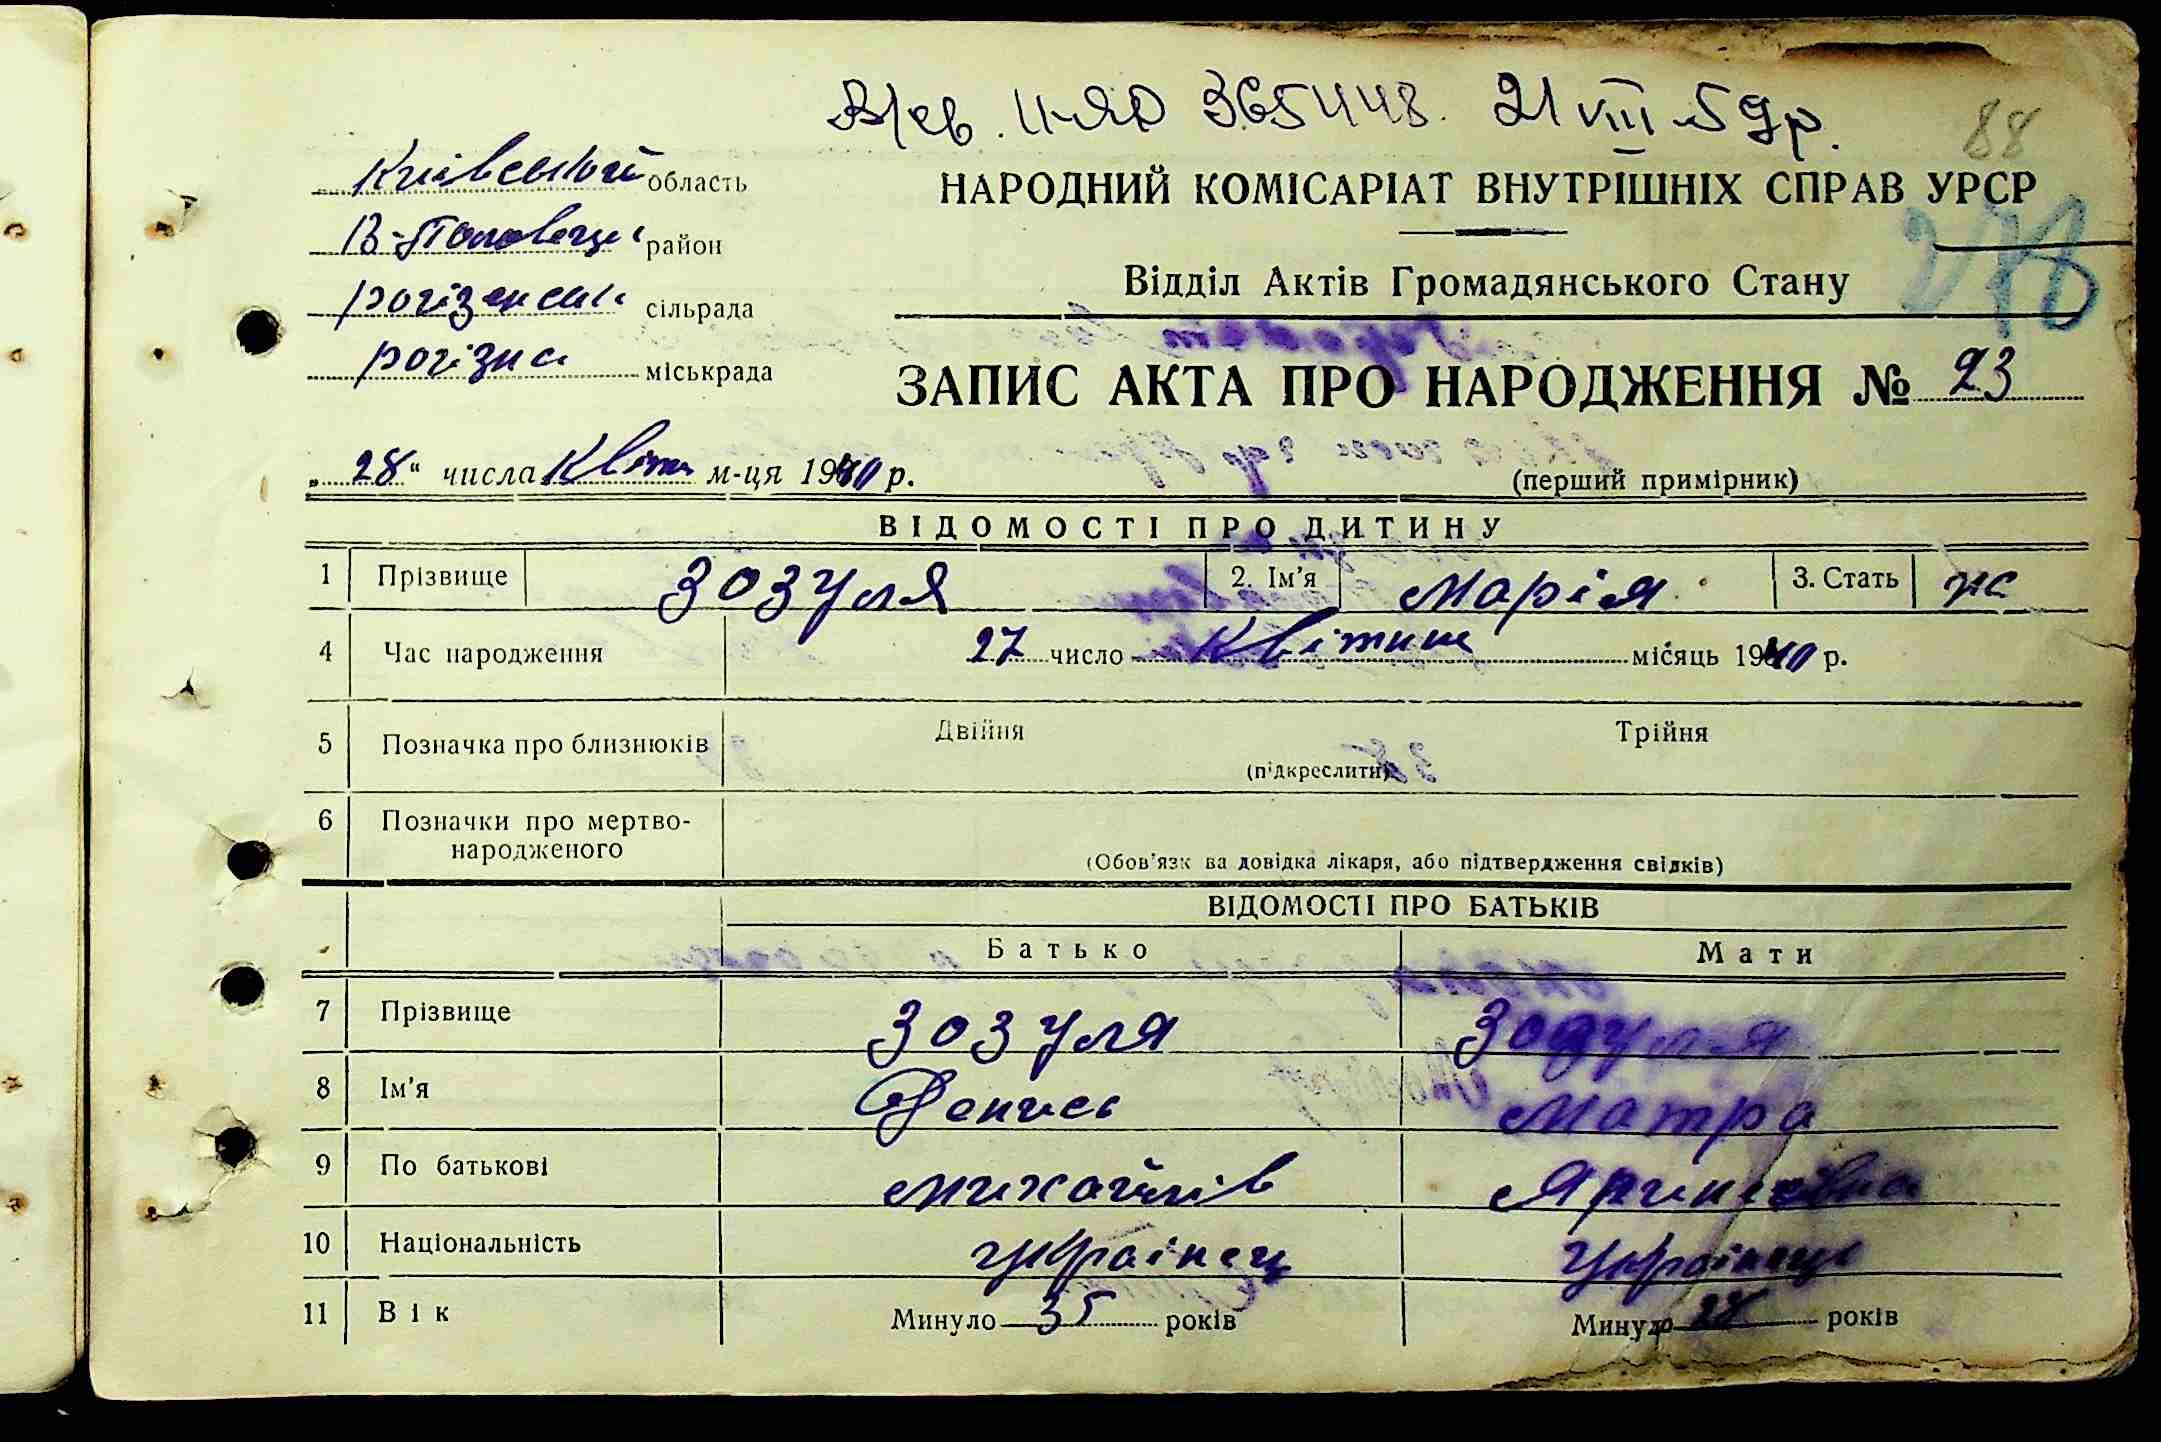 В/св. II-ЯР 365448. 21 VIII 59 р.
88
Київський область
В-Половецьк район
рогізенська сільрада
рогізна міськрада
НАРОДНИЙ КОМІСАРІАТ ВНУТРІШНІХ СПРАВ УРСР
Відділ Актів Громадянського Стану
ЗАПИС АКТА ПРО НАРОДЖЕННЯ № 23
„28“ числа Квітн м-ця 1940 р.
(перший примірник)
ВІДОМОСТІ ПРО ДИТИНУ
1 Прізвище Зозуля 2. Ім'я Марія 3. Стать ж
4 Час народження 27 число Квітня місяць 1940 р.
5 Позначка про близнюків Двійня Трійня
(підкреслити)
6 Позначки про мертво-
народженого
(Обов'язкова довідка лікаря, або підтвердження свідків)
ВІДОМОСТІ ПРО БАТЬКІВ
Батько Мати
7 Прізвище Зозуля Зозуля
8 Ім'я Денис Мотра
9 По батькові михайлів
10 Національність українец українец
11 Вік Минуло 35 років Минуло 28 років